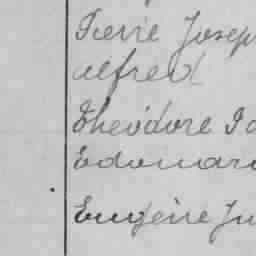 Pierre Josep
alfred
Théodore
Edouard
Eugène Ju